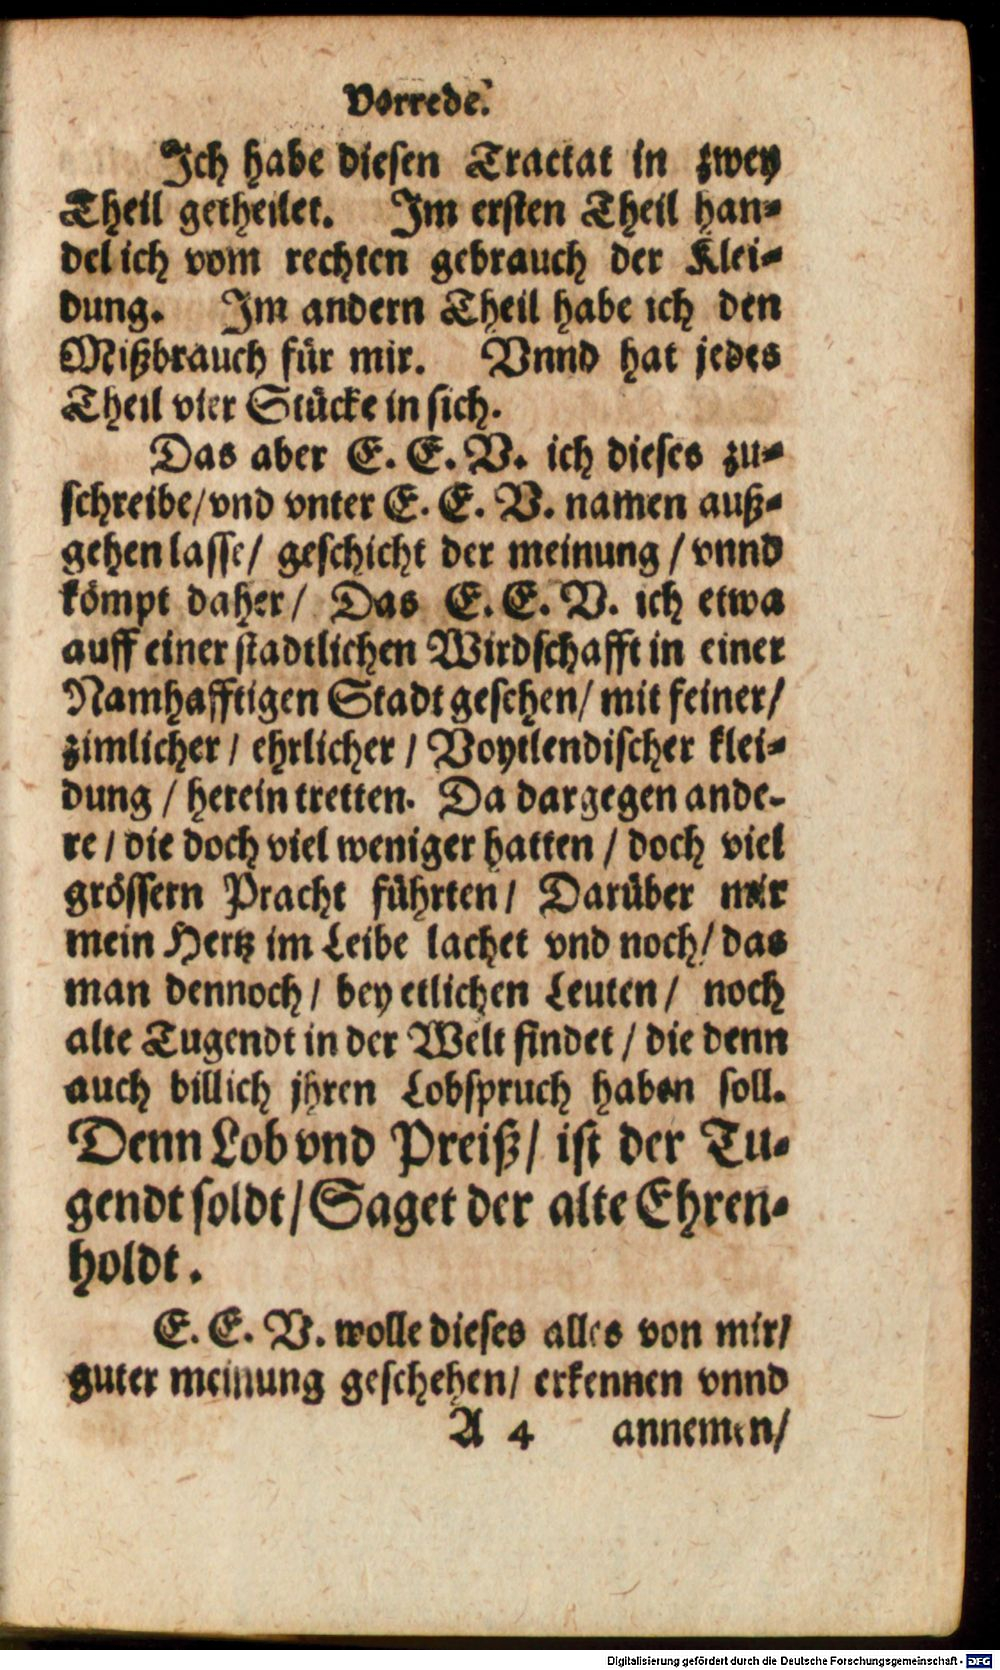 Vorrede.
Ich habe diesen Tractat in zwey
Theil getheilet. Im ersten Theil han-
del ich vom rechten gebrauch der Klei-
dung. Im andern Theil habe ich den
Mißbrauch für mir. Vnnd hat jedes
Theil vier Stücke in sich.
Das aber E. E. V. ich dieses zu-
schreibe/ vnd vnter E. E. V. namen auß-
gehen lasse/ geschicht der meinung/ vnnd
kömpt daher/ Das E. E. V. ich etwa
auff einer stadtlichen Wirdschafft in einer
Namhafftigen Stadt gesehen/ mit feiner/
zimlicher/ ehrlicher/ Voytlendischer klei-
dung/ herein tretten. Da dargegen ande-
re/ die doch viel weniger hatten/ doch viel
grössern Pracht führten/ Darüber mir
mein Hertz im Leibe lachet vnd noch/ das
man dennoch/ bey etlichen Leuten/ noch
alte Tugendt in der Welt findet/ die denn
auch billich jhren Lobspruch haben soll.
Denn Lob vnd Preiß/ ist der Tu-
gendt soldt/ Saget der alte Ehren-
holdt.
E. E. V. wolle dieses alles von mir/
guter meinung geschehen/ erkennen vnnd
A 4 annemen/
Digitalisierung gefördert durch die Deutsche Forschungsgemeinschaft - DFG